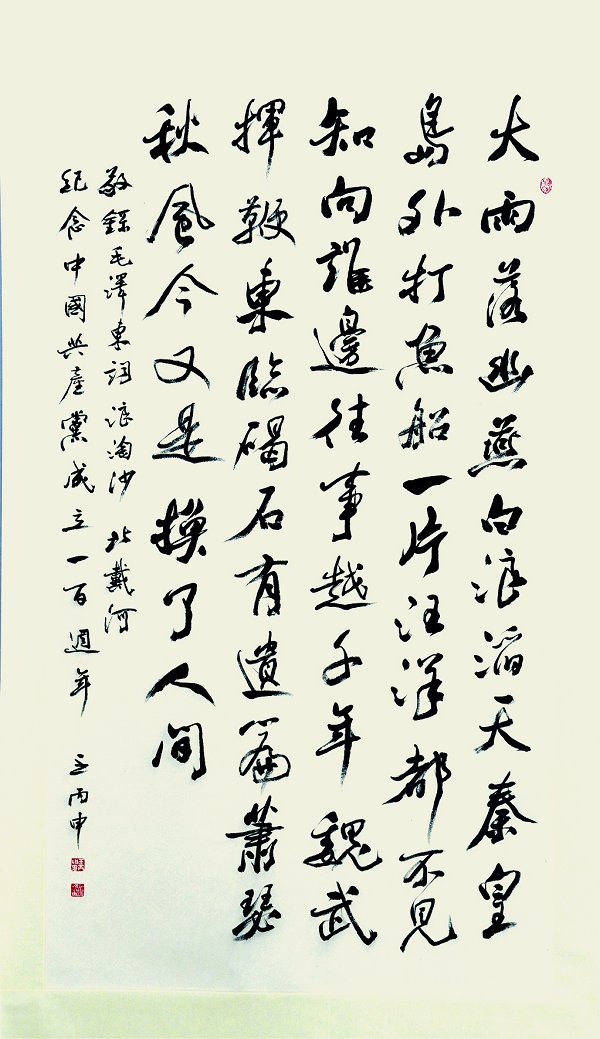 大雨落幽燕白浪滔天秦皇
島外打魚船一片汪洋都不見
知向誰邊往事越千年魏武
揮鞭東臨碣石有遺篇蕭瑟
秋風今又是換了人間
敬錄毛澤東詞浪淘沙 北戴河
紀念中國共產黨成立一百週年 丙申